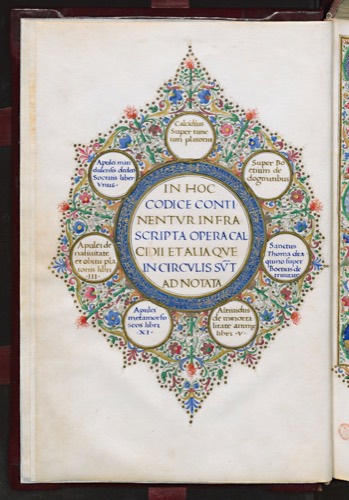 IN HOC
CODICE CONTI
NENTVR INFRA
SCRIPTA OPERA CAL
CIDII ET ALIA QVE
IN CIRCVLIS SVT
AD NOTATA
Calcidius
Super time
um platonis
Super Bo
etium de
Sanctus
Thoma de a
quino super
Boetius de
trinitate
de inmorta
litate anime
libri ·V·
Apulei
metamorfo
seos libri
·XI·
Apulei de
et obitu pla
tonis libri
·III·
Apulei
Socratis liber
Vnus·